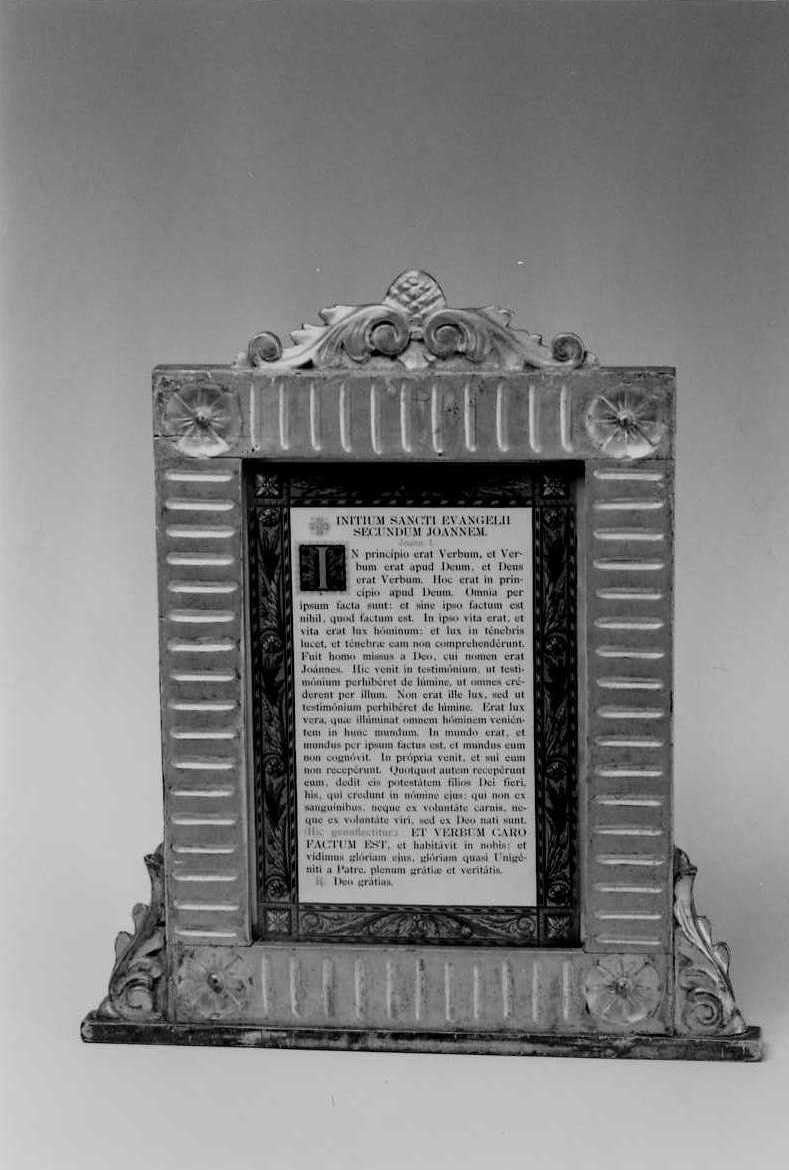 INITIUM SANCTI EVANGELII
SECUNDUM JOANNEM.
Joann. 1.
IN princípio erat Verbum, et Ver-
bum erat apud Deum, et Deus
erat Verbum. Hoc erat in prin-
cípio apud Deum. Omnia per
ipsum facta sunt: et sine ipso factum est
nihil, quod factum est. In ipso vita erat, et
vita erat lux hóminum: et lux in ténebris
lucet, et ténebræ eam non comprehendérunt.
Fuit homo missus a Deo, cui nomen erat
Joánnes. Hic venit in testimónium, ut testi-
mónium perhibéret de lúmine, ut omnes cré-
derent per illum. Non erat ille lux, sed ut
testimónium perhibéret de lúmine. Erat lux
vera, quæ illúminat omnem hóminem venién-
tem in hunc mundum. In mundo erat, et
mundus per ipsum factus est, et mundus eum
non cognóvit. In própria venit, et sui eum
non recepérunt. Quotquot autem recepérunt
eum, dedit eis potestátem filios Dei fieri,
his, qui credunt in nómine ejus: qui non ex
sanguinibus, neque ex voluntáte carnis, ne-
que ex voluntáte viri, sed ex Deo nati sunt.
(Hic genuflectitur.) ET VERBUM CARO
FACTUM EST, et habitávit in nobis: et
vídimus glóriam ejus, glóriam quasi Unigé-
niti a Patre, plenum grátiæ et veritátis.
℟. Deo grátias.